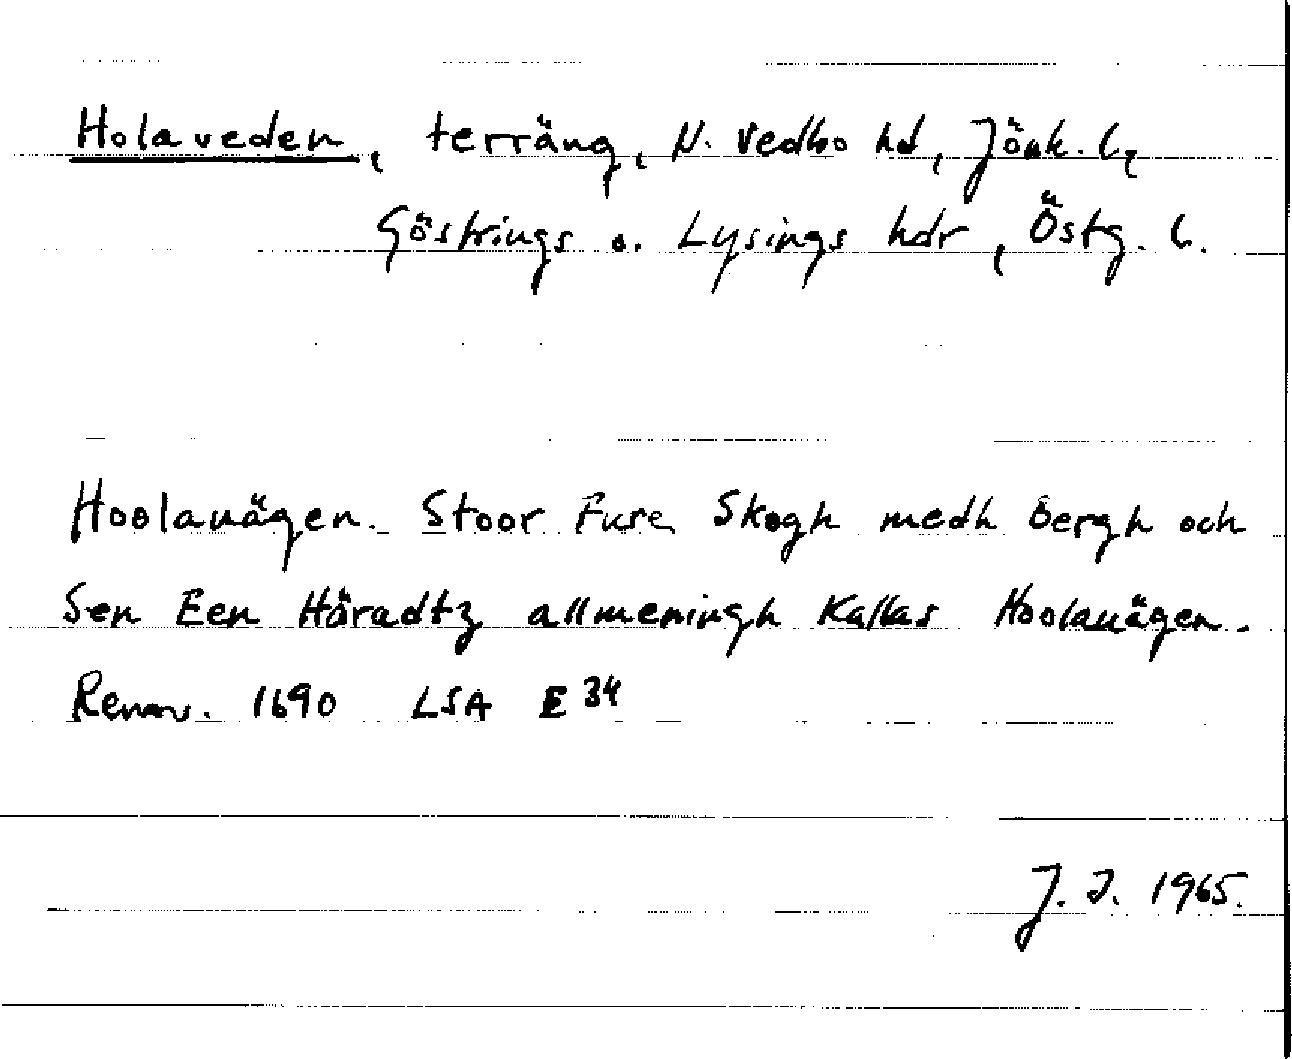 Holaveden, terräng, N. Vedbo hd, Jönk. l,
Göstrings o. Lysings hdr, Östg. l.
Hoolauägen. Stoor Fure Skogh medh bergh och
Sen Een Häradtz allmeningh Kallas Hoolauägen.
Renov. 1690 LSA E 34
J. J. 1965.